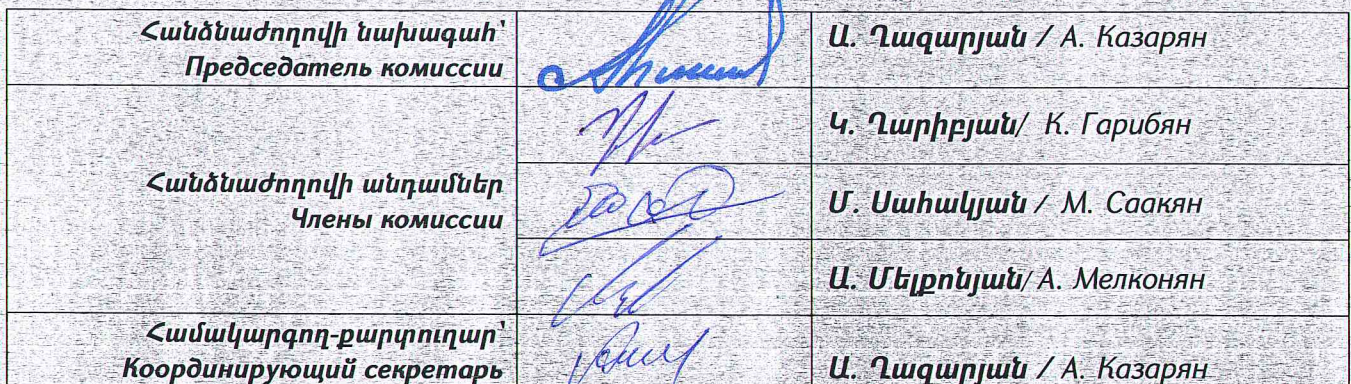 Հանձնաժողովի նախագահ՝
Председатель комиссии
Ա. Ղազարյան / А. Казарян
Կ. Ղարիբյան/ К. Гарибян
Հանձնաժողովի անդամներ
Члены комиссии
Մ. Սահակյան / М. Саакян
Ա. Մելքոնյան/ А. Мелконян
Համակարգող-քարտուղար՝
Координирующий секретарь
Ա. Ղազարյան / А. Казарян